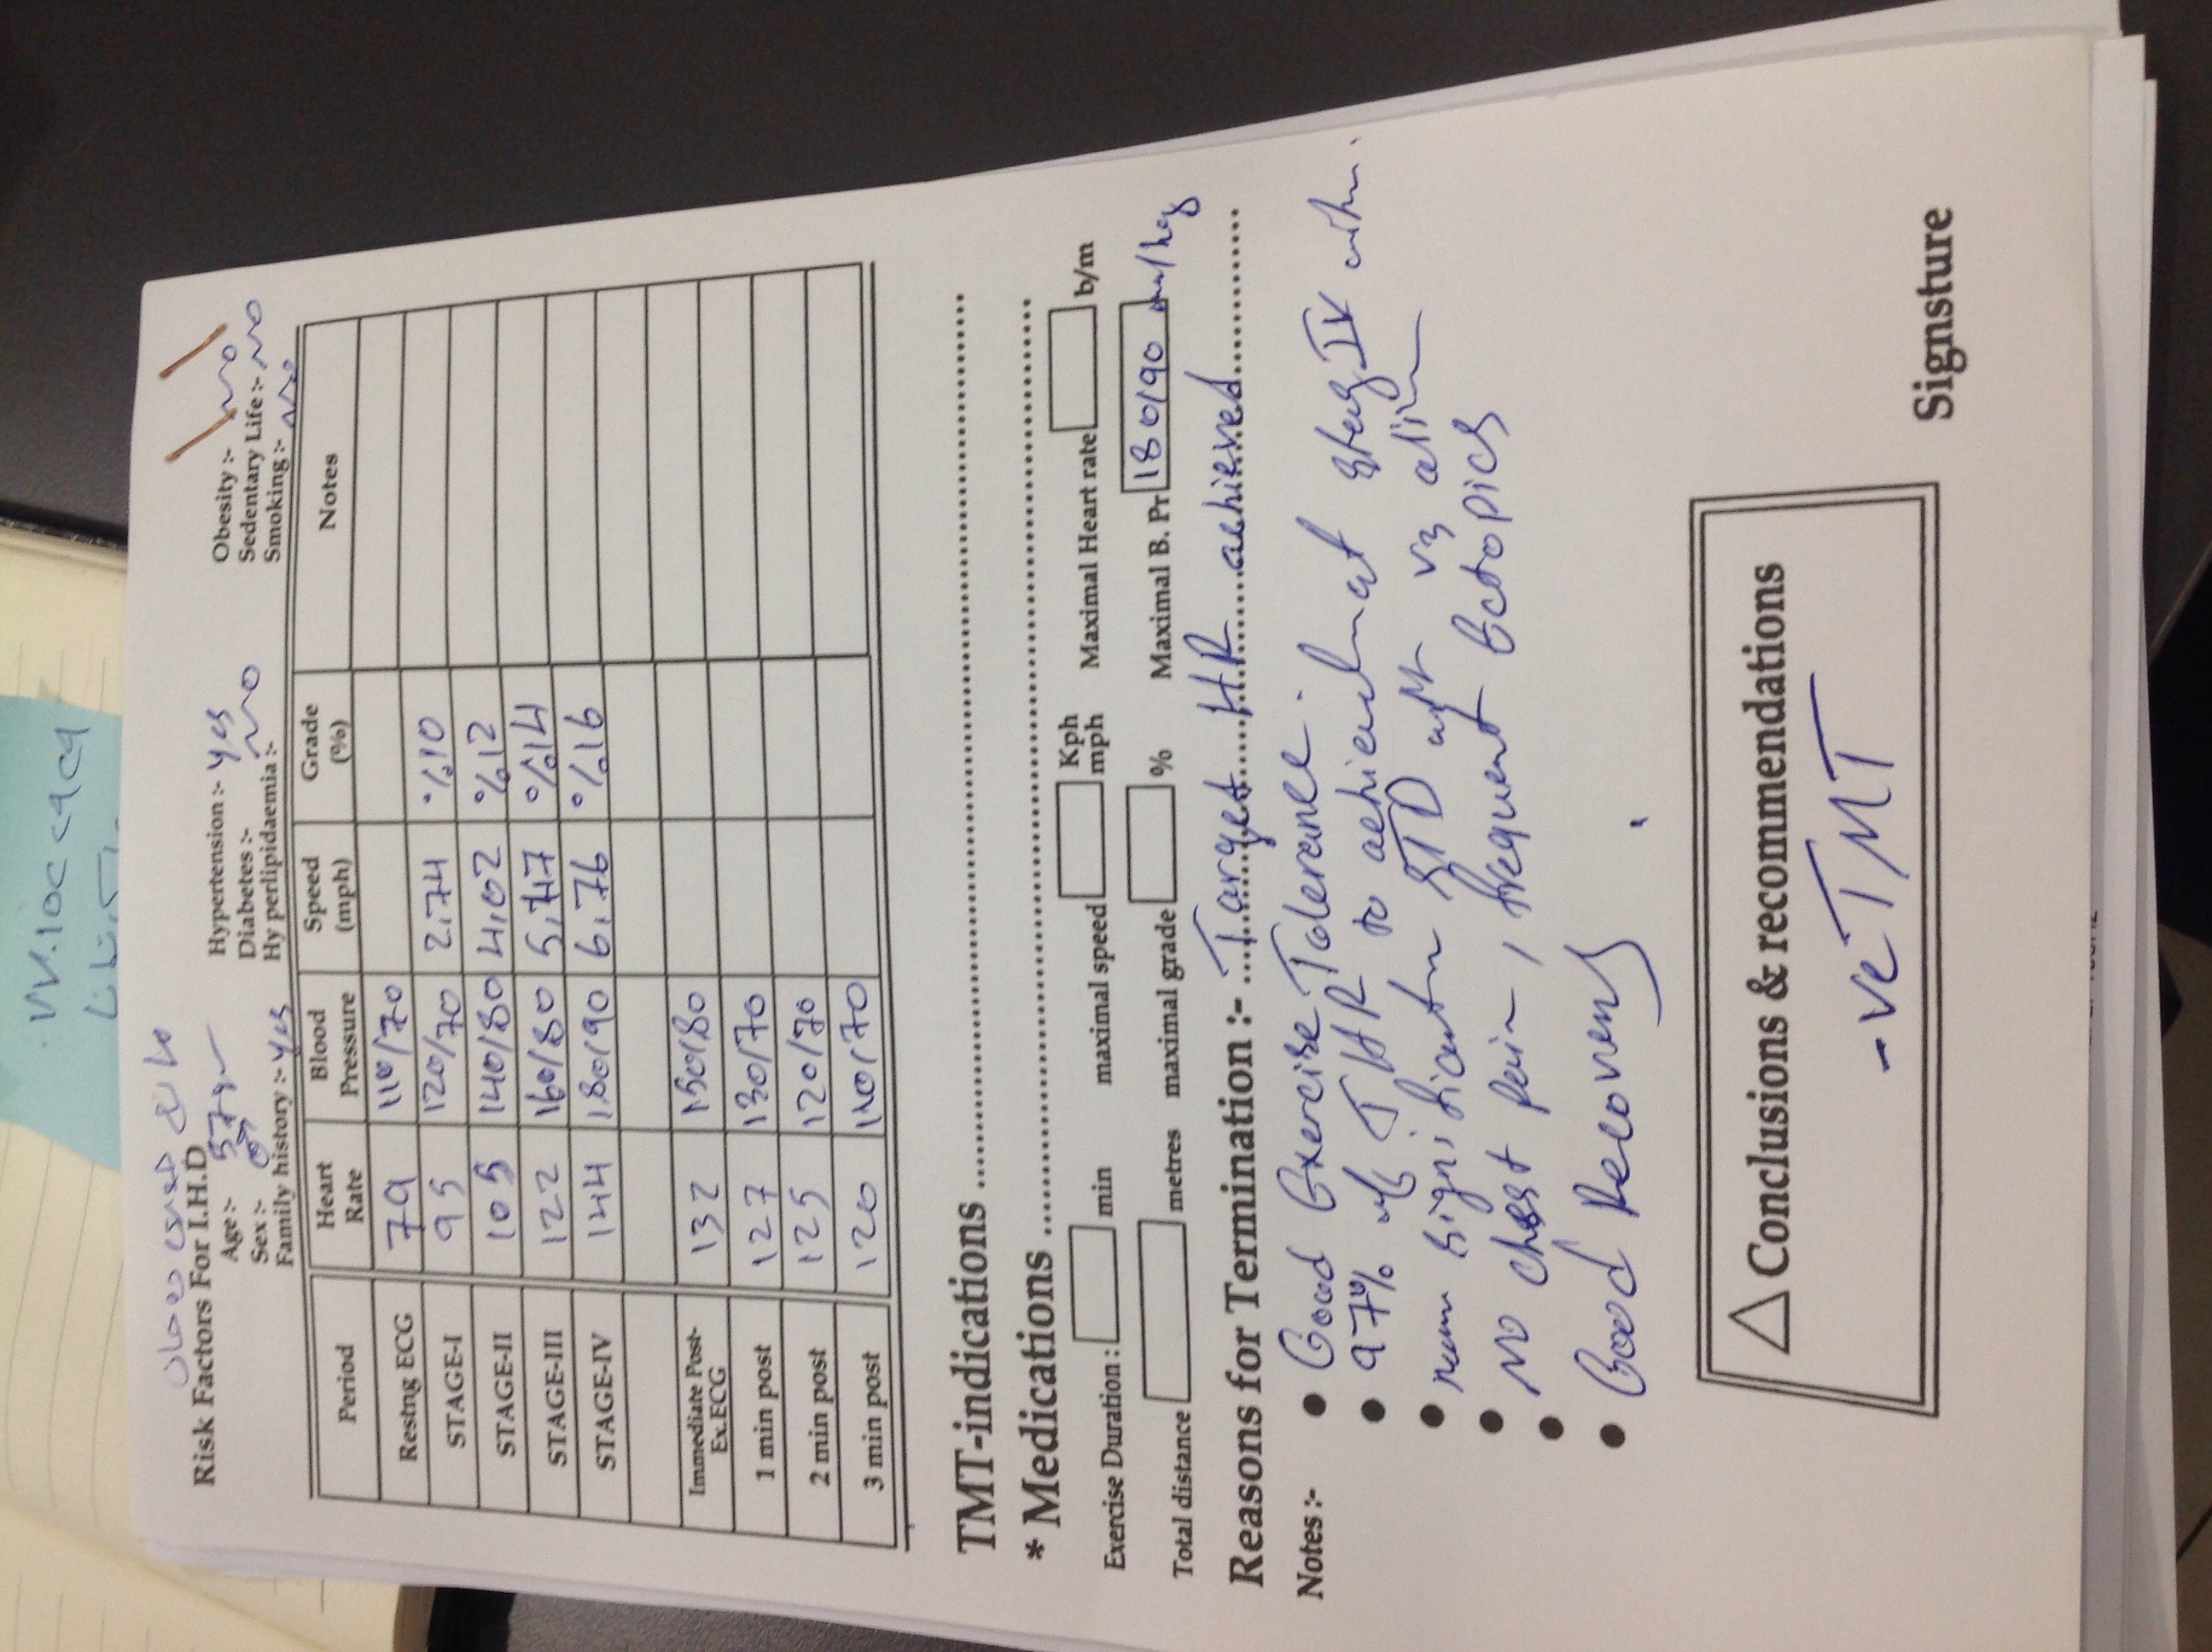 Risk Factors For I.H.D
Age:- 57 Hypertension :- yes Obesity :- no
Sex:- ♂ Diabetes :- no Sedentary Life :- no
Family history :- yes Hy perlipidaemia :- Smoking :- no
Period Heart Rate Blood Pressure Speed (mph) Grade (%) Notes
Restng ECG 79 110/70
STAGE-I 95 120/70 2.74 %10
STAGE-II 105 140/80 4.02 %12
STAGE-III 122 160/80 5.47 %14
STAGE-IV 144 180/90 6.76 %16
Immediate Post-Ex.ECG 132 150/80
1 min post 127 130/70
2 min post 125 120/70
3 min post 120 110/70
TMT-indications
* Medications
Exercise Duration : min maximal speed Kph mph Maximal Heart rate b/m
Total distance metres maximal grade % Maximal B. Pr 180/90 mm/hg
Reasons for Termination :- Target HR achieved
Notes :- • Good Exercise Tolerance
• 97% of THR achieved at stage IV
• significant STD
• no chest pain, frequent Ectopics
•
• Good Recovery
△ Conclusions & recommendations
-ve TMT
Signsture